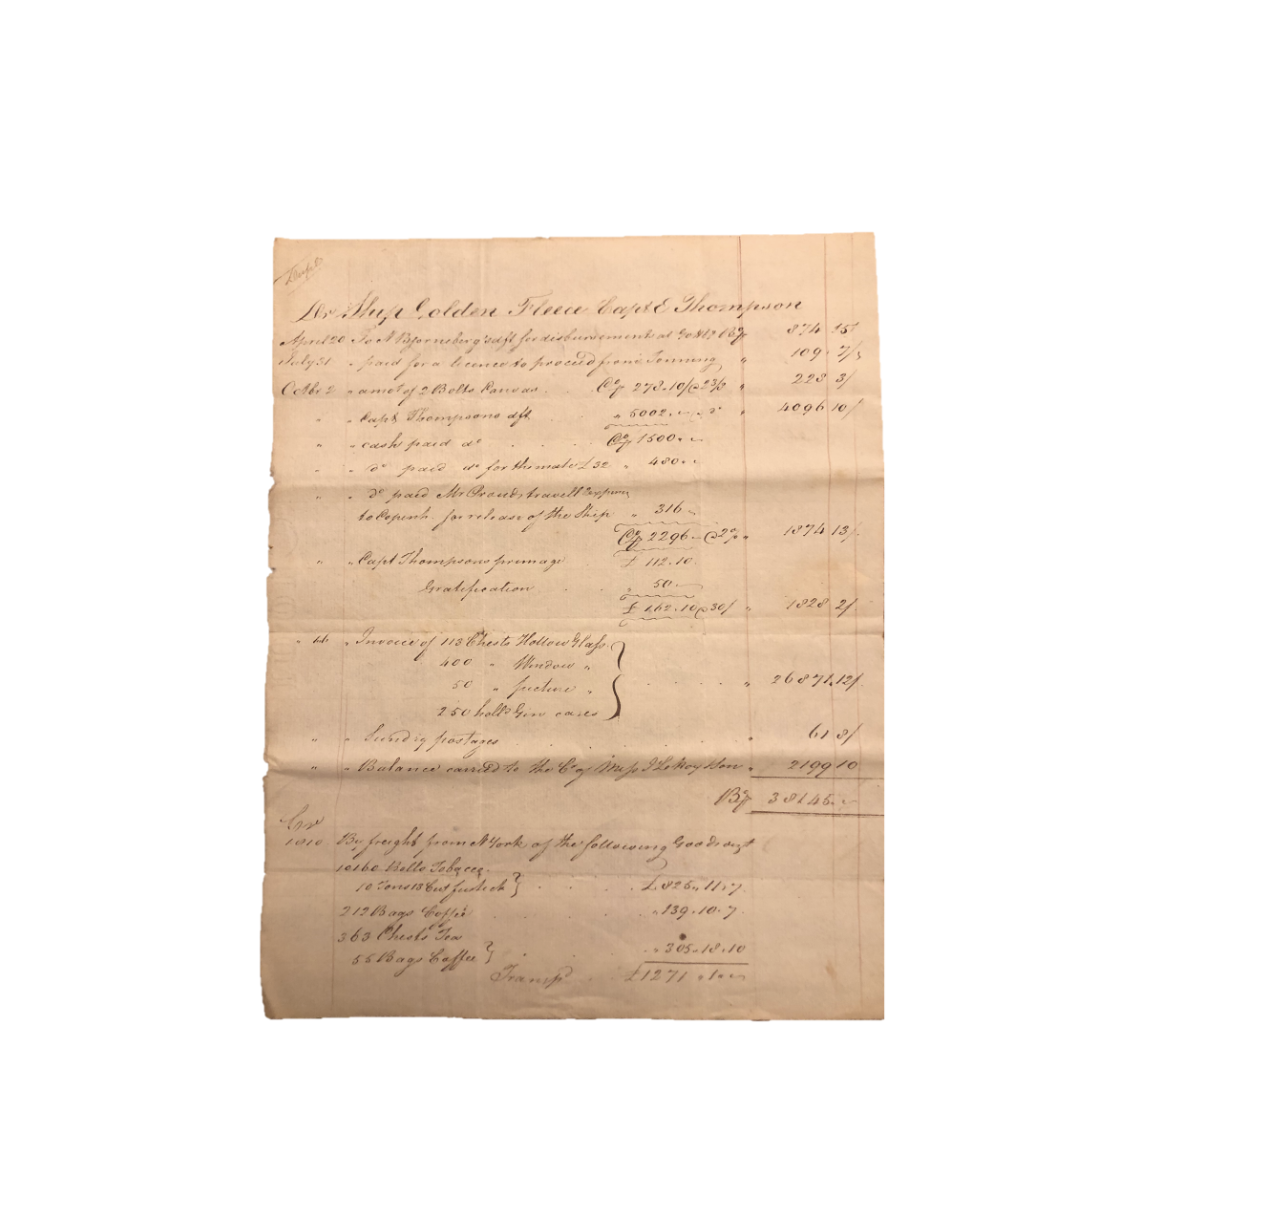 Dr Ship Golden Fleece Capt E Thompson
April 20 To A Bjornsberg's dft for disbursements at 874 15
July 31 " paid for a licence to proceed from Tonning " 109 7/
Octbr 2 " amot of 2 Bolts Canvas 278.10/ @ " 228 3/
" " Capt Thompsons dft " 5002. " 4096 10/
" " cash paid do 1500.
" " do paid do for the mate £32 " 480.
" " do paid Mr travell Expens
to Copenh. for release of the Ship " 316
2296 @ " 1874 13/
" " Capt Thompsons primage £ 112.10.
Gratification " 50
£ 162.10 @ 30/ " 1828 2/
" " Invoice of 113 Chests Hollow Glass
400 " Window "
50 " picture "
250 Gin cases " 26871.12/
" " Sundry postages " 61 8/
" " Balance carried to the Cr of Mess Son " 2199 10
38145.
Cr
1810 By freight from N York of the following Goods
10160 Bolts Tobacco
10 Tons 13 Cwt fustick £825.11.7.
212 Bags Coffee " 139.10.7.
363 Chests Tea
55 Bags Coffee " 305.18.10
Transp £1271.1.